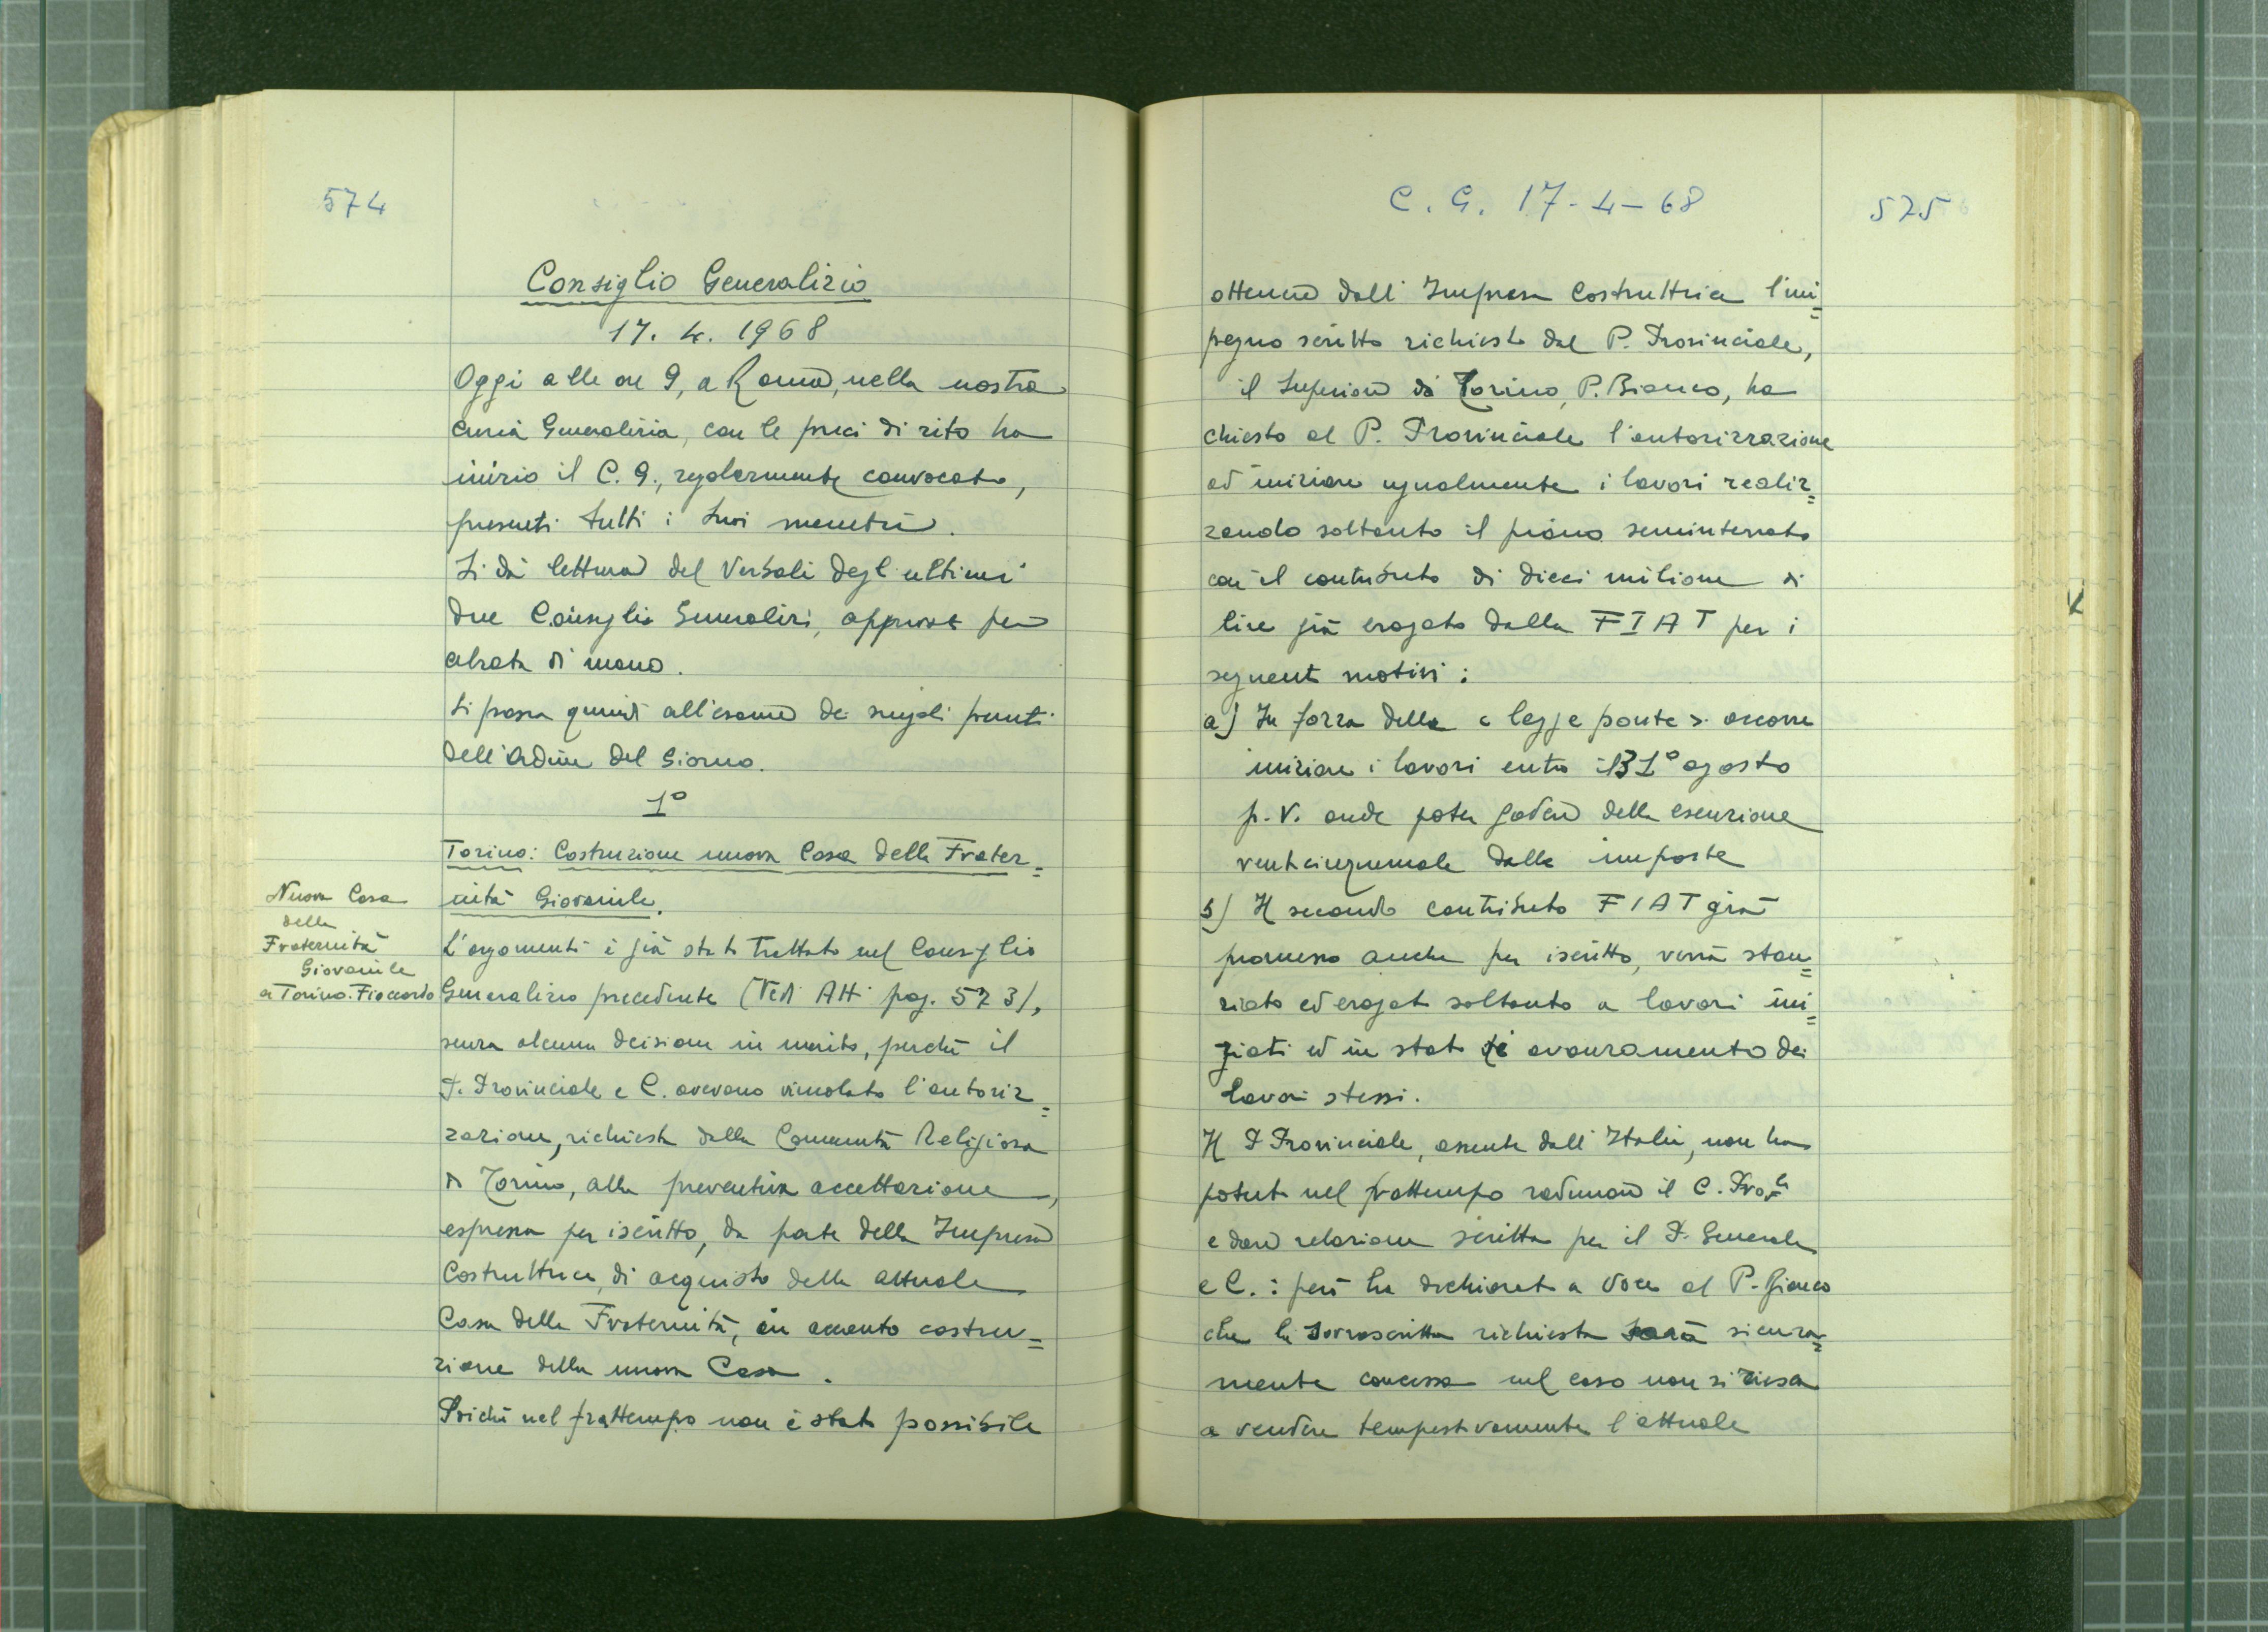 574
Consiglio Generalizio
17. 4. 1968
Oggi alle ore 9, a Roma, nella nostra
Curia Generalizia, con le preci di rito ha
inizio il C. G., regolarmente convocato,
presenti tutti i suoi membri.
Si dà lettura dei Verbali degli ultimi
due Consigli Generalizi, approvati per
alzata di mano.
Si passa quindi all'esame dei singoli punti
dell'Ordine del Giorno.
1º
Torino: Costruzione nuova Casa della Frater=
nità Giovanile.
Nuova Casa
della
Fraternità
Giovanile
a Torino.
L'argomento è già stato trattato nel Consiglio
Generalizio precedente (Vedi Atti pag. 573),
senza alcuna decisione in merito, perché il
P. Provinciale e C. avevano vincolato l'autoriz=
zazione, richiesta dalla Comunità Religiosa
di Torino, alla preventiva accettazione,
espressa per iscritto, da parte della Impresa
Costruttrice, di acquisto della attuale
Casa della Fraternità, in acconto costru=
zione della nuova Casa.
Poiché nel frattempo non è stato possibile
C. G. 17-4-68
575
ottenere dall'Impresa Costruttrice l'im=
pegno scritto richiesto dal P. Provinciale,
il Superiore di Torino, P. Bianco, ha
chiesto al P. Provinciale l'autorizzazione
ad iniziare ugualmente i lavori realiz=
zando soltanto il piano seminterrato
con il contributo di dieci milioni di
lire già erogato dalla FIAT per i
seguenti motivi:
a) In forza della « legge ponte » occorre
iniziare i lavori entro il 31º agosto
p.v. onde poter godere della esenzione
venticinquennale dalle imposte
b) Il secondo contributo FIAT già
promesso anche per iscritto, verrà stan=
ziato ed erogato soltanto a lavori ini=
ziati ed in stato di avanzamento dei
lavori stessi.
Il P. Provinciale, assente dall'Italia, non ha
potuto nel frattempo radunare il C. Prov.le
e dare relazione scritta per il P. Generale
e C.: però ha dichiarato a voce al P. Bianco
che la sovrascritta richiesta sarà sicura=
mente concessa nel caso non si riesca
a vendere tempestivamente l'attuale